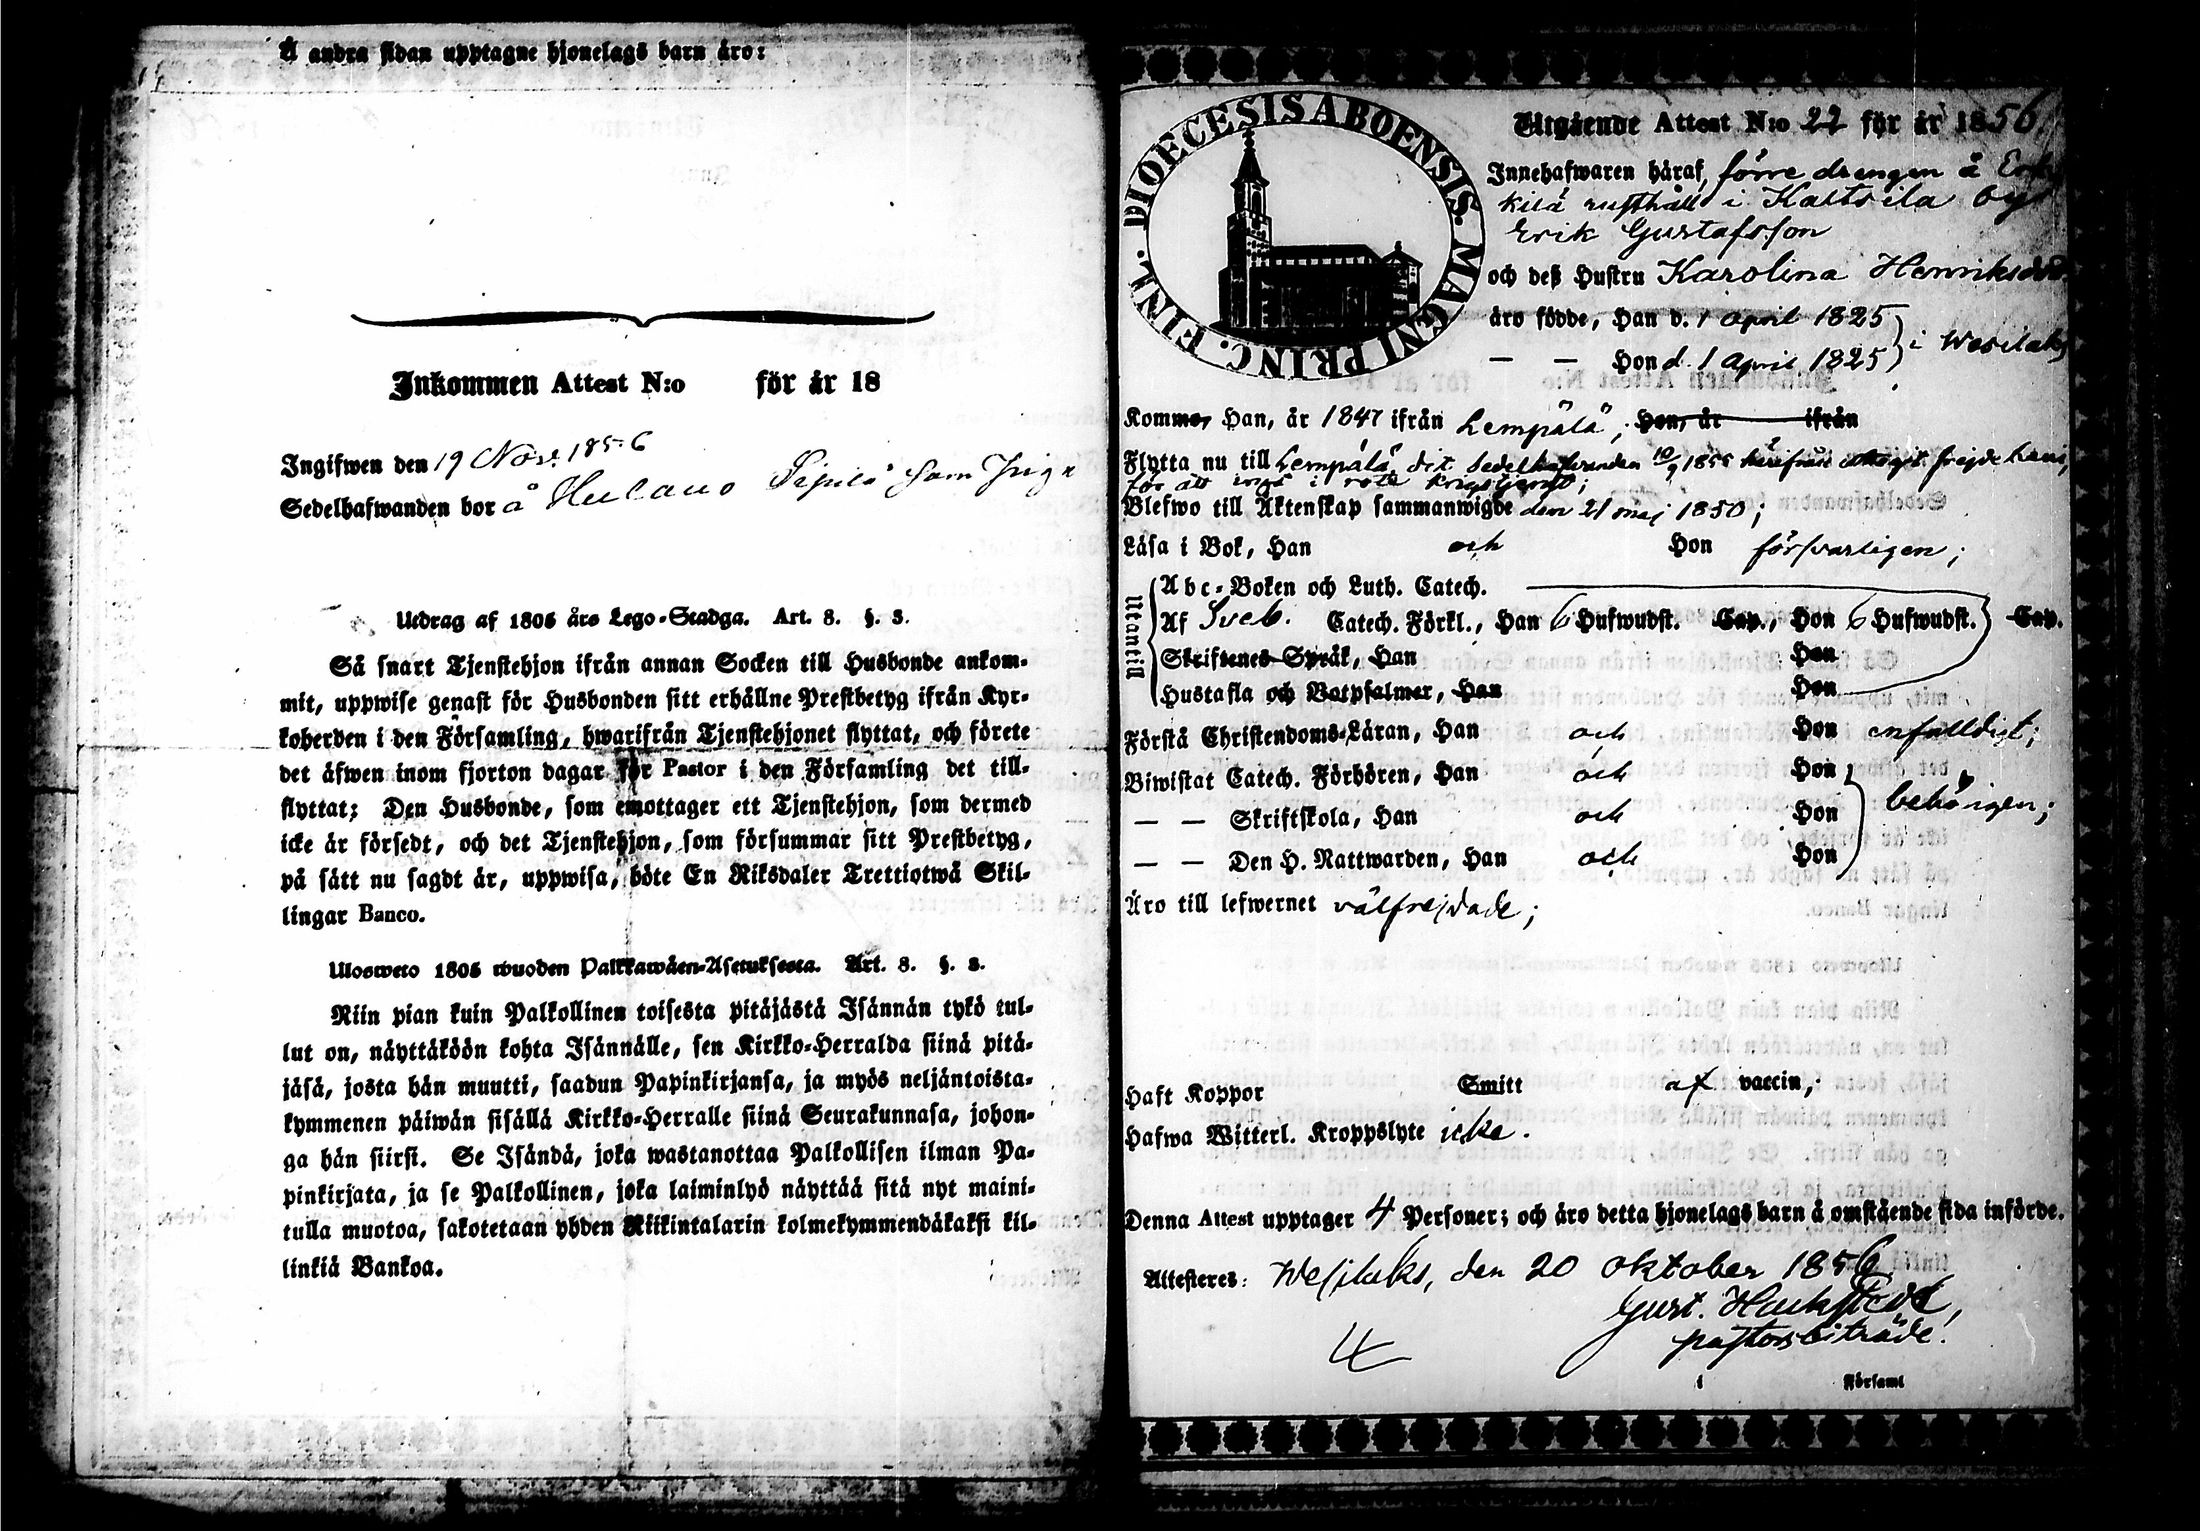 Å andra sidan upptagne hjonelags barn äro:
Inkommen Attest N:o för år 18
Ingifwen den 19 Nov. 1856
Sedelhafwanden bor å Hulaus Sipilä som
Utdrag af 1805 års Lego-Stadga. Art. 8. §. 3.
Så snart Tjenstehjon ifrån annan Socken till Husbonde ankom-
mit, uppwise genast för Husbonden sitt erhållne Prestbetyg ifrån Kyr-
koherden i den Församling, hwarifrån Tjenstehjonet flyttat, och förete
det äfwen inom fjorton dagar för Pastor i den Församling det till-
flyttat; Den Husbonde, som emottager ett Tjenstehjon, som dermed
icke är försedt, och det Tjenstehjon, som försummar sitt Prestbetyg,
på sätt nu sagdt är, uppwisa, böte En Riksdaler Trettiotwå Skil-
lingar Banco.
Ulosweto 1805 wuoden Palkkawäen-Asetuksesta. Art. 8. §. 3.
Niin pian kuin Palkollinen toisesta pitäjästä Isännän tykö tul-
lut on, näyttäköön kohta Isännälle, sen Kirkko-Herralda siinä pitä-
jäsä, josta hän muutti, saadun Papinkirjansa, ja myös neljäntoista-
kymmenen päiwän sisällä Kirkko-Herralle siinä Seurakunnasa, johon-
ga hän siirsi. Se Isändä, joka wastanottaa Palkollisen ilman Pa-
pinkirjata, ja se Palkollinen, joka laiminlyö näyttää sitä nyt maini-
tulla muotoa, sakotetaan yhden Riikintalarin kolmekymmendäkaksi kil-
linkiä Bankoa.
DIOECESIS ABOENSIS. MAGNI PRINC. FINL.
Utgående Attest N:o 22 för år 1856
Innehafwaren häraf, förre drengen å Erk
kilä rusthåll i Kaltsila by
Erik Gustafsson
och deß Hustru Karolina Henriksdotr
äro födde, Han d. 1 april 1825
— — Hon d. 1 april 1825 i Wesilaks
Kommo, Han, år 1847 ifrån Lempälä; Hon, år ifrån
Flytta nu till Lempälä, dit Sedelhafwanden 10/9 1855 härifrån frejde
för att ingå i rote krigstjenst;
Blefwo till Äktenskap sammanwigde den 21 maj 1850;
Läsa i Bok, Han och Hon försvarligen;
Utantill
Abc-Boken och Luth. Catech.
Af Sveb. Catech. Förkl., Han 6 Hufwudst. Cap., Hon 6 Hufwudst. Cap.
Skriftenes Språk, Han Hon
Hustafla och Botpsalmer, Han Hon
Förstå Christendoms-Läran, Han och Hon enfalldigt;
Biwistat Catech. Förhören, Han och Hon
— — Skriftskola, Han och Hon behörigen;
— — Den H. Nattwarden, Han och Hon
Äro till lefwernet välfrejdade;
Haft Koppor Smitt af vaccin;
Hafwa Witterl. Kroppslyte icke.
Denna Attest upptager 4 Personer; och äro detta hjonelags barn å omstående sida införde.
Attesteres: Wesilaks, den 20 oktober 1856
Gust. Hackstedt,
pastorsbiträde.
4
i Församl